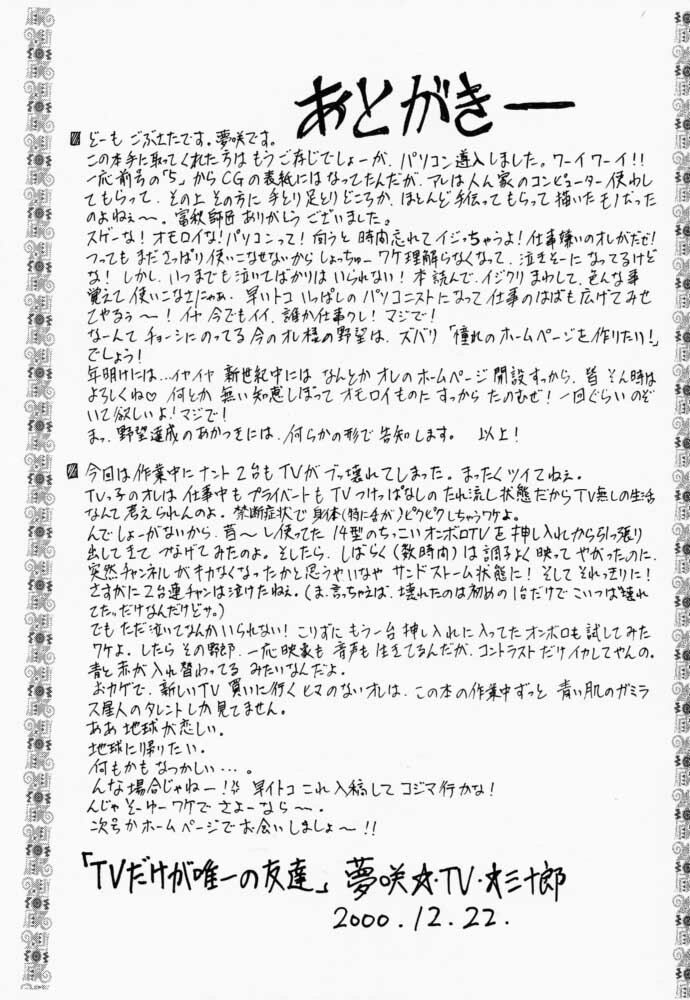 あとがきー
どーも ごぶさたです。夢咲です。
この本手に取ってくれた方は もうご存じでしょーが、パソコン導入しました。ワーイワーイ!!
一応前号の「5」からCGの表紙にはなってたんだが、アレは人ん家のコンピューター使わし
てもらって、その上 その方に 手とり足とりどころか、ほとんど手伝ってもらって描いたモノだった
のよねぇ〜。富秋師匠ありがとうございました。
スゲーな!オモロイな!パソコンって!向うと時間忘れてイジっちゃうよ!仕事嫌いのオレがだぜ!
つってもまださっぱり使いこなせないからしょっちゅーワケ理解らなくなって、泣きそーになってるけど
な!しかし、いつまでも泣いてばかりはいられない!本読んで、イジクりまわして、色んな事
覚えて使いこなさにゃぁ。早いトコ いっぱしのパソコニストになって仕事のはばも広げてみせ
てやるぅ〜!イヤ 今でもイイ、誰か仕事クレ!マジで!
なーんてチョーシにのってる今のオレ様の野望は、ズバリ「憧れのホームページを作りたい!」
でしょう!
年明けには…イヤイヤ 新世紀中には なんとか オレのホームページ開設すっから、皆 そん時は
よろしくね♡ 何とか 無い知恵しぼって オモロイものに すっから たのむぜ!一回ぐらい のぞ
いて欲しいよ!マジで!
まっ、野望達成のあかつきには、何らかの形で告知します。 以上!
今回は作業中にナント2台もTVがブッ壊れてしまった。まったくツイてねぇ。
TVっ子のオレは仕事中もプライベートもTVつけっぱなしのたれ流し状態だからTV無しの生活
なんて考えられんのよ。禁断症状で身体(特に舌が)ピクピクしちゃうワケよ。
んでしょーがないから、昔〜し使ってた14型のちっこいオンボロTVを押し入れから引っ張り
出してきてつなげてみたのよ。そしたら、しばらく(数時間)は調子よく映ってやがったのに、
突然チャンネルがキカなくなったかと思うやいなやサンドストーム状態に!そしてそれっきりに!
さすがに2台連チャンは泣けたねぇ。(ま、言っちゃえば、壊れたのは初めの1台だけでこいつは"壊れ
てた"だけなんだけどサ。)
でもただ泣いてなんかいられない!こりずにもう一台押し入れに入ってたオンボロも試してみた
ワケよ。したらその野郎、一応映象も音声も生きてるんだが、コントラストだけイカレてやんの。
青と赤が入れ替わってるみたいなんだよ。
おカゲで、新しいTV買いに行くヒマのないオレは、この本の作業中ずっと青い肌のガミラ
ス星人のタレントしか見てません。
ああ地球が恋しい。
地球に帰りたい。
何もかもなつかしい…。
んな場合じゃねー!早イトコこれ入稿してコジマ行かな!
んじゃそーゆーワケでさよーなら〜。
次号かホームページでお会いしましょ〜!!
「TVだけが唯一の友達」夢咲☆・TV・☆三十郎
2000.12.22.